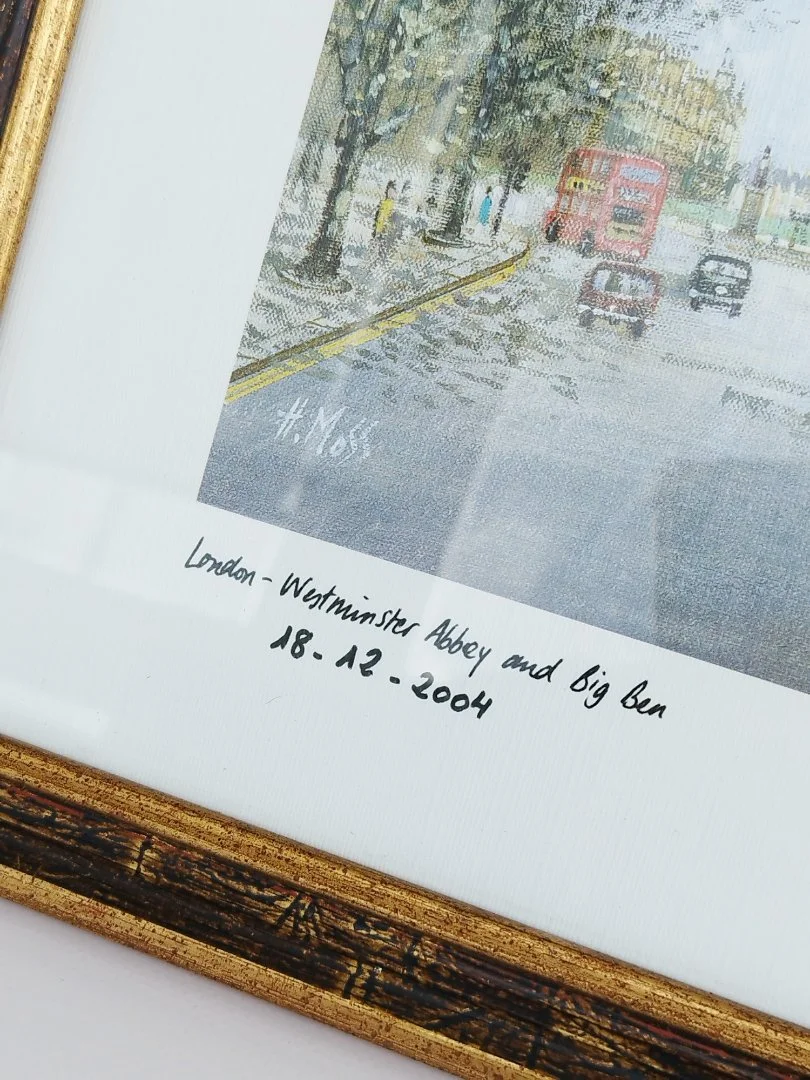 H. Moss
London - Westminster Abbey and Big Ben
18 - 12 - 2004